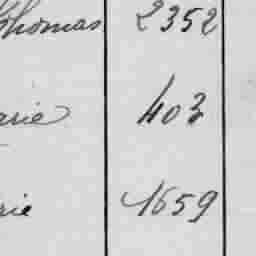 Thomas 2352
arie 403
rie 1659